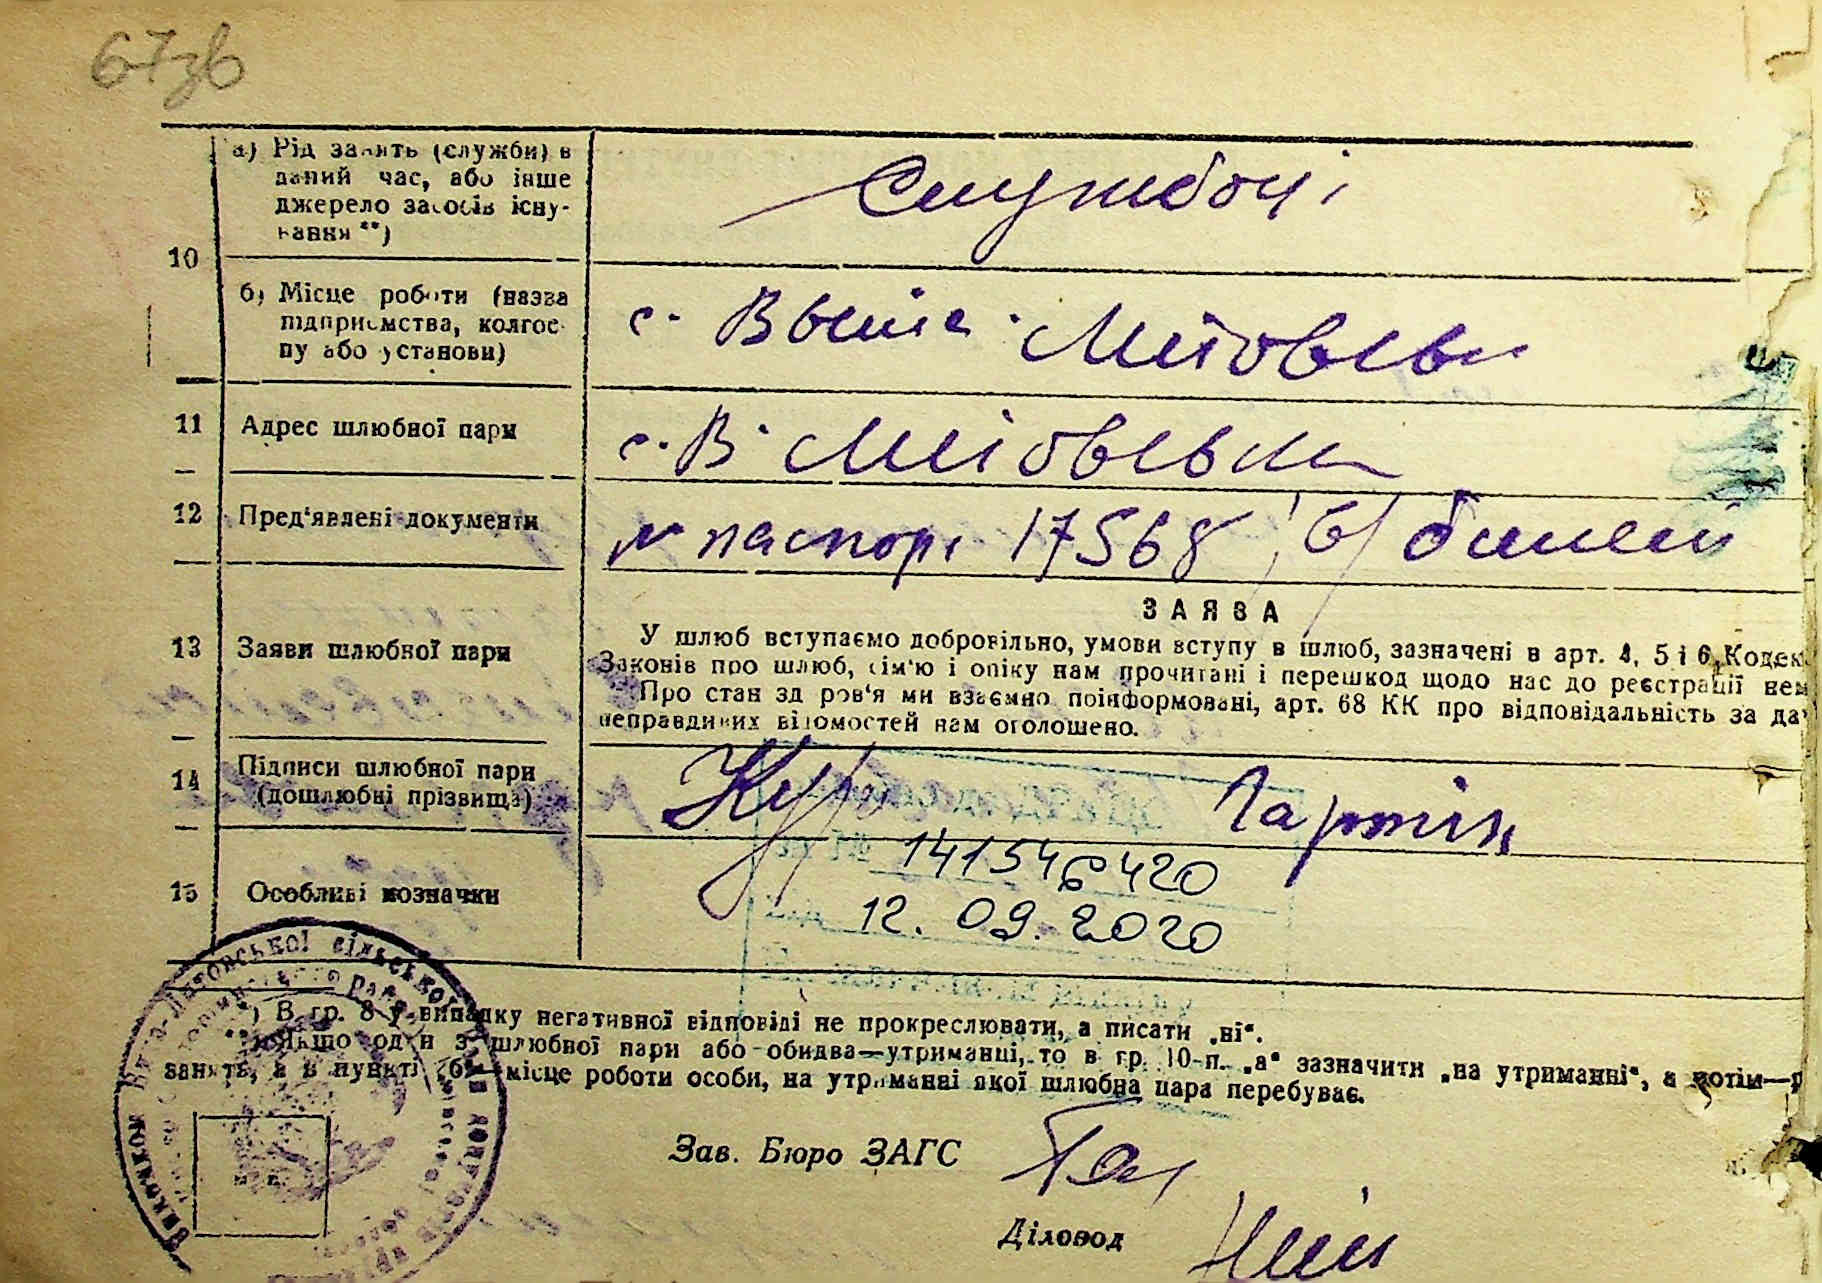 67зв
10
а) Рід занять (служби) в
даний час, або інше
джерело засобів існу-
вання **)
Службоч і
б) Місце роботи (назва
підприємства, колгос-
пу або установи)
с.
11
Адрес шлюбної пари
с. В
12
Пред'явлені документи
паспорт 17568 б/ билет
ЗАЯВА
13
Заяви шлюбної пари
У шлюб вступаємо добровільно, умови вступу в шлюб, зазначені в арт. 4, 5 і 6 Кодек
Законів про шлюб, сім'ю і опіку нам прочитані і перешкод щодо нас до реєстрації нем
Про стан здоров'я ми взаємно поінформовані, арт. 68 КК про відповідальність за да
неправдивих відомостей нам оголошено.
14
Підписи шлюбної пари
(дошлюбні прізвища)
15
Особливі позначки
141546420
12. 09. 2020
*) В гр. 8 у випадку негативної відповіді не прокреслювати, а писати „ні“.
**) Якщо один з шлюбної пари або обидва—утриманці, то в гр. 10-п. „а“ зазначити „на утриманні“, а потім—р
занять, а в пункті „б“—місце роботи особи, на утриманні якої шлюбна пара перебуває.
Зав. Бюро ЗАГС
Діловод